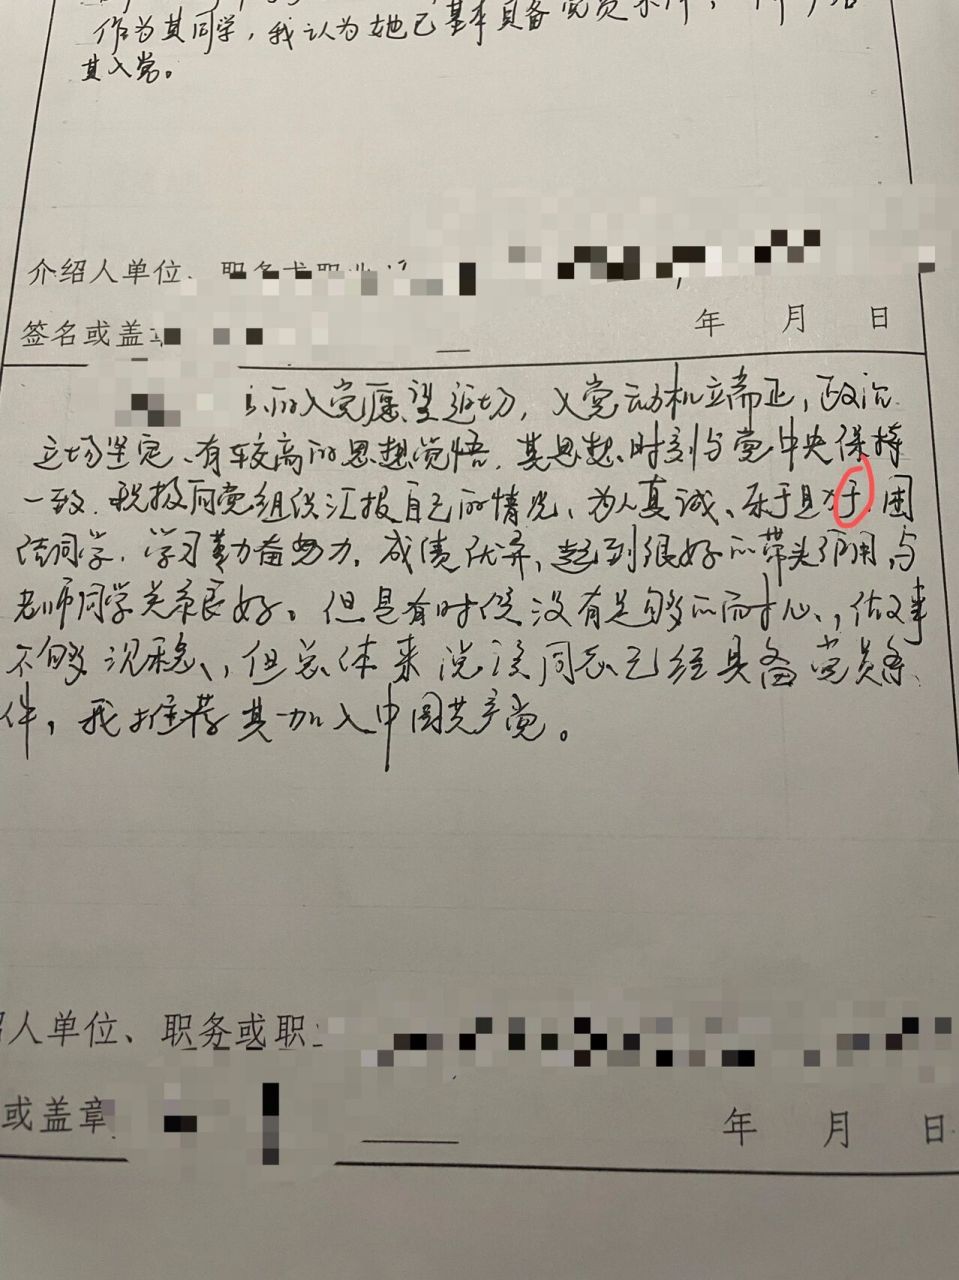 作为其同学，我认为她已基本具备党员条件，
其入党。
介绍人单位、职务或职业
签名或盖章
年 月 日
的入党愿望迫切，入党动机立端正，政治
立场坚定、有较高的思想觉悟，其思想时刻与党中央保持
一致，积极向党组织汇报自己的情况、为人真诚、乐于助于，团
结同学，学习勤力奋努力，成绩优异，起到很好的带头作用，与
老师同学关系良好。但是有时候没有足够的耐心，做事
不够沉稳，但总体来说该同志已经具备党员条
件，我推荐其加入中国共产党。
绍人单位、职务或职
或盖章
年 月 日